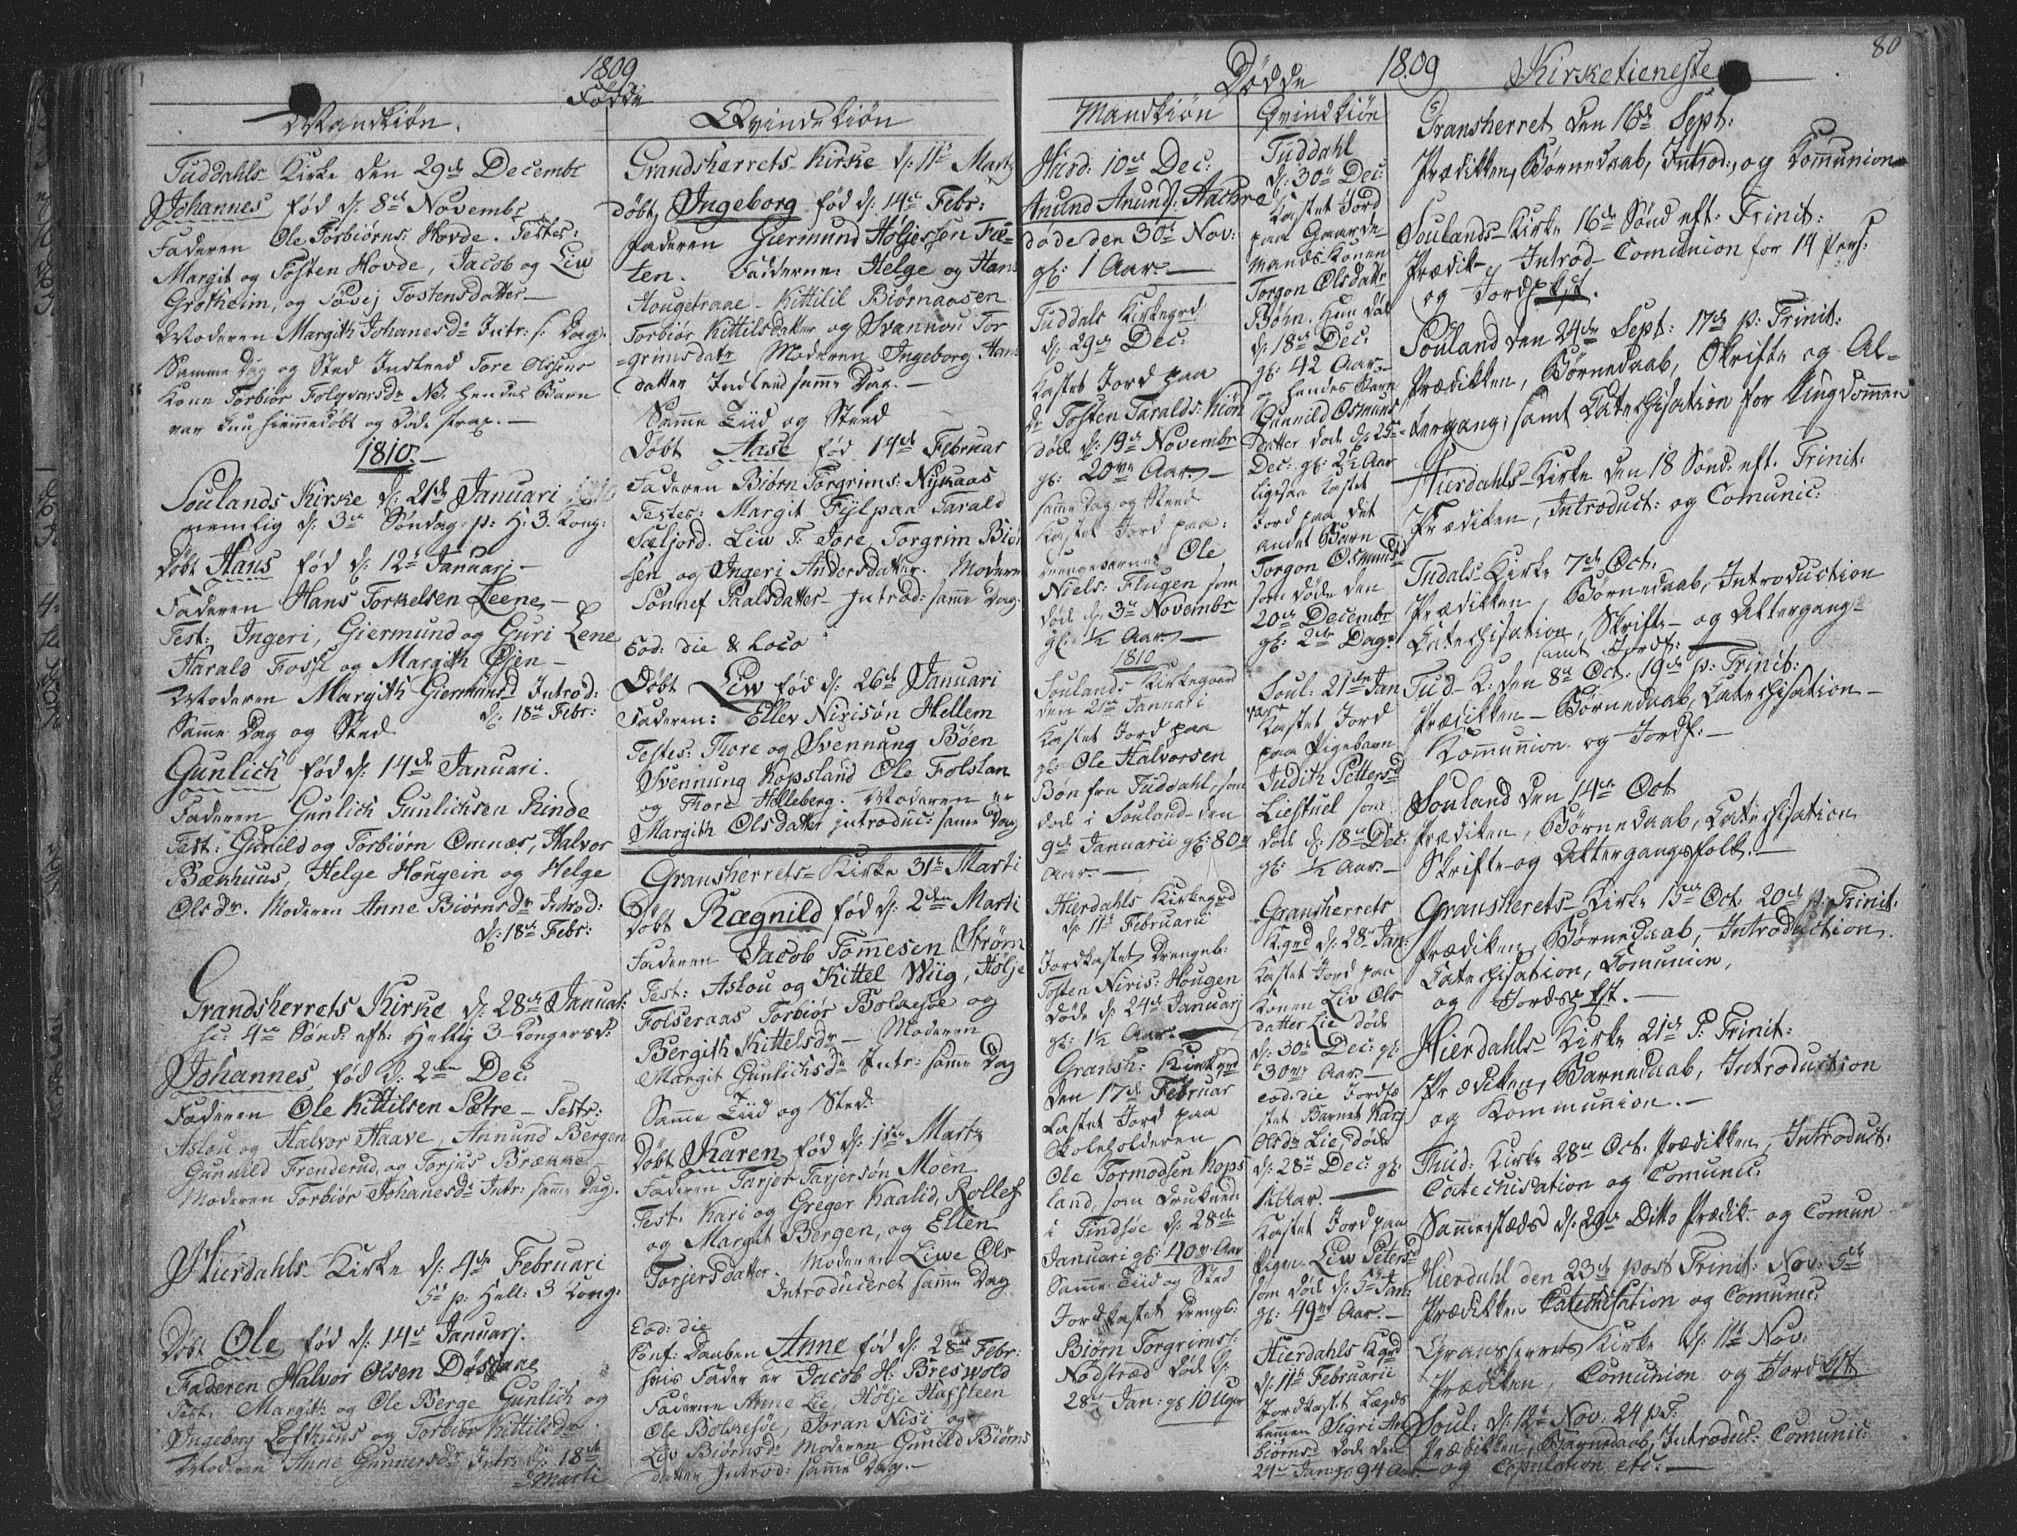 1809
Fødde
Mandkiøn.
Tuddahls Kirke den 29de Decembr
Johannes fød d: 8de Novembr
Faderen Ole Torbiørns: Hovde. Testes:
Margit og Tosten Hovde, Jacob og Liw
Grotheim, og Tostensdatter
Moderen Margith Johanesdr Intr: s. Dag.
Samme Dag og Sted Indleed Tore Olsens
Kone Torbiør Folqvarsdr NB. Hendes Barn
var kun hiemmedøbt og døde strax.
1810.
Soulands Kirke d: 21de Januari 1810
nemlig d: 3de Søndag p: H: 3. Kong:
Døbt Hans fød d: 12te Januari
Faderen Hans Torkelsen Leene
Test: Ingeri, Giermund og Guri Lene
Harald Fosse og Margith Øjen
Moderen Margith Giermunsd Introd:
d: 18de Febr:
Samme Dag og Sted
Gunlich fød d: 14de Januari.
Faderen Gunlich Gunlichsen Rinde
Test: Gunild og Torbiørn Omnæs, Halvor
Bækhuus, Helge Høngein og Helge
Olsdr. Moderen Anne Biørnsdr Introd:
d: 18de Febr:
Grandsherrets Kirke d: 28de Januar:
4de Sønd: eft: Hellig 3 Kongersd:
Johannes, fød d: 2den Dec:
Faderen Ole Kittilsen Sætre Testes:
Aslou og Halvor Haave, Annund Bergen
Gunnild Trenderud, og Torjus Brække
Moderen Torbiør Johanesdr Intr: samme Dag.
Hierdahls Kirke d: 4de Februari
5te p: Hell: 3 Kong:
Døbt Ole fød d: 14de Januarj.
Faderen Halvor Olsen
Test: Margith og Ole Berge Gunlich og
Ingeborg Lofthuus og Torbiør Kittilsdr
Moderen Anne Gunnersdr Intr: d: 18de
Marti
Qvindekiøn
Grandsherrets Kirke d: 11te Marti
døbt, Ingeborg fød d: 14de Febr:
Faderen Giermund Høljessen
ten. Fadderne: Helge og Hans
Hougetraae Kittilil Biørnaasen
Torbiør Kittilsdatter og Svannou Tor
grimsdatr Moderen Ingeborg Hans
datter Indleed samme Dag.
Samme Tiid og Sted
Døbt Aase fød 14de Februar
Faderen Biørn Torgrims: Nykaas
Testes: Margit Fylpaa Tarald
Sæljord. Liw T. Tore, Torgrim Biør
sen og Ingeri Andersdatter. Moderen
Sønnef Paalsdatter Introd: samme Dag.
Eod: die & Loco
Døbt Liw fød d: 26de Januari
Faderen: Ellev Nirisøn Hellem
Testes: Thore og Svennung Bøen
Svennung Kopsland Ole Folstan
og Thore Holleberg. Moderen
Margith Olsdatter introduc: samme Dag
Gransherrets Kirke 31te Marti
Døbt Ragnild fød d: 2den Marti
Faderen Jacob Tommesen Strøm
Test: Aslou og Kittel Wiig, Hølje
Folseraas Torbiør Bolkesøe og
Bergith Kittelsdr Moderen
Margit Gunlichsdr Intr: samme Dag
Samme Tiid og Sted:
Døbt Karen fød d: Marti
Faderen Tarjer Tarjersøn Moen
Test: Kari og Greger Kaalid, Rollef
og Margit Bergen, og Ellen
Torjersdatter. Moderen Liwe Ols
Introduceret samme Dag
Eod: die
Conf: Daaben Anne fød d: 28de Febr:
hvis Fader er Jacob H: Breswold
Fadderne Anne Lie, Hølje Haffsteen
Ole Bolkesøe, Joran Nisi og
Liv Biørnsdr Moderen Gunild Biørns
datter Introd: samme Dag.
80
Dødde 1809 Kirketieneste
Mandkiøn
Hierd: 10de Dec:
Anund Anunds: Aachre
døde den 30te Nov:
gl: 1 Aar.
Tuddals Kirkegrd
d: 29de Dec:
Kastet Jord paa
Tosten Taralds: Kiøn
død d: 19de Novembr
gl: 20ve Aar
samme Dag og Sted
Kastet Jord paa:
Drengebarnet Ole
Niels: Flugen som
døde d: 3de Novembr
gl: 1/2 Aar.
1810
Soulands Kirkegaard
den 21de Januari
Kastet Jord paa
gl: Ole Halvorsen
Bøn fra Tuddahl, som
døde i Souland den
9de Januarii gl: 80
Aar.
Hierdahls Kirkegrd
d: 11te Februarii
Jordkastet Drengeb:
Tosten Niris: Hougen
døde d: 24de Januarj
gl: 1 1/2 Aar.
Gransh: Kirkgrd
den 17de Februar
Kastet Jord paa
Skoleholderen
Ole Tormodsen Kops
land, som druknede
i Tindsøe d: 28de
Januari gl: 40 Aar
Samme Tiid og Sted
Jordkastet Drengb:
Biørn Torgrims:
Nødstræd døde d:
28de Jan: gl 10 Uger
Qvindkiøn
Tuddahl
d: 30te Dec:
Kastet Jord
paa Gaarde
mands Konen
Torgon Olsdatte
Bøhn. Hun døde
d: 18de Dec:
gl: 42 Aar
og hendes Barn
Gunnild Osmuns
datter døde d: 25
Dec: gl: 2 1/2 Aar
ligesaa Kastet
Jord paa det
andet Barn
Torgon Osmunsd
som døde den
20de Decembr
gl: 2de Dage
Soul: 21de Jan
Kastet Jord
paa Pigebarn
Judith Pettersd
Liestuel som
døde d: 18de Dec:
gl: 1/2 Aar.
Gransherrets
Kgrd d: 28de Jan:
Kastet Jord paa
Konen Liv Ols
datter Lie døde
d: 30te Dec: gl:
30 Aar
eod: die Jordfæ
stet Barnet Karj
Olsdr Lie, døde
d: 28de Dec: gl:
Aar.
Kastet Jord paa
Pigen Liw Petersd
som døde d: 5te Jan:
gl: 49 Aar.
Hierdahls Kgrd
d: 11te Februarii
Jordkastet Lægds
lemmen Sigri An
biørnsd døde den
24de Jan: gl 94 Aar
Gransherret den 16de Sept:
Prædikken, Børnedaab, Introd:, og Communion
Soulands Kirke 16de Sønd eft: Trinit:
Prædik Introd Comunion for 14 Pers:
og Jordpkst.
Souland den 24de Sept: 17de p: Trinit:
Prædikken, Børnedaab, Skrifte og Al-
tergang, samt Catechisation for Ungdommen
Hierdahls Kirke den 18 Sønd: eft. Trinit:
Prædiken, Introduct: og Comunic:
Tudals Kirke 7de Oct:
Prædikken, Børnedaab, Introduction
Catechisation, Skrifte og Altergang
samt Jordf:
Tud K: den 8de Oct: 19de p: Trinit:
Prædikken Børnedaab, Catechisation
Kommunion og Jordf:
Souland den 14de Oct
Prædiken, Børnedaab, Catechisation
Skrifte og Altergangsfolk.
Gransherets Kirke 15de Oct: 20de p: Trinit:
Prædiken, Børnedaab, Introduction.
Catechisation, Comunion,
og Jords kst.
Hierdahls Kirke 21de P: Trinit:
Prædiken, Barnedaab, Introduction
og Kommunion.
Thud: Kirke 28de Oct: Prædikken, Introduct:
Catechisation og Comunic:
Sammesteds d: 29de Ditto Prædik. og Comun
Hierdahl den 23de post Trinit: Nov: 5te
Prædikken Catechisation og Comunic:
Gransherrets Kirke d: 11te Nov:
Prædiken, Comunion og Jord kst
Soul: d: 12te Nov: 24 p T:
Prædikken, Barnedaab, Introduc: Comunic:
og Copulation etc: